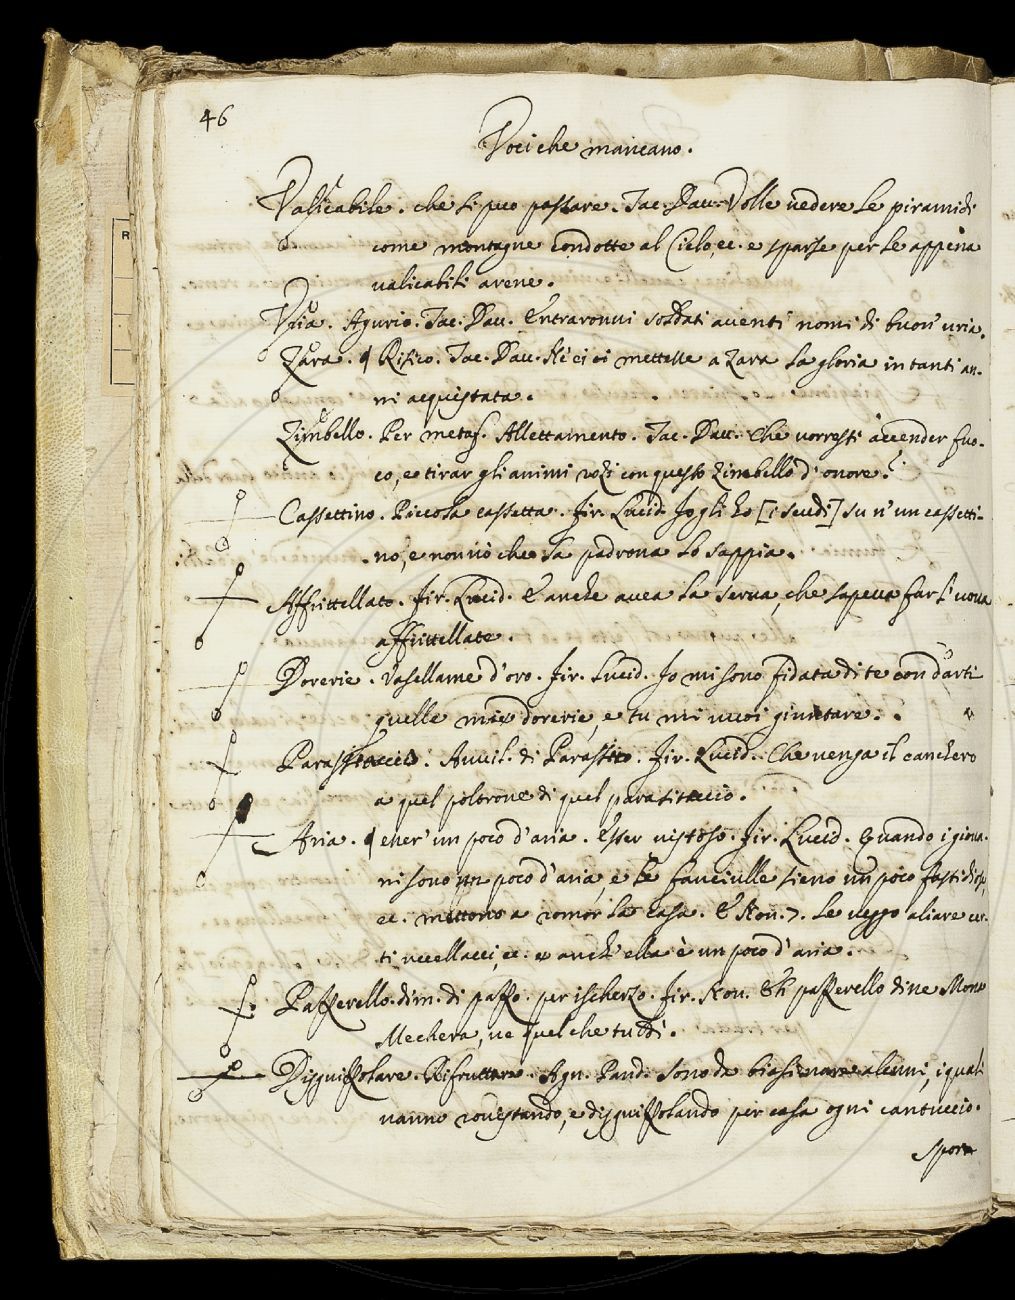 46
Voci che mancano.
Valicabile. che si può passare. Tac. Dav. Volle vedere le piramidi
come montagne condotte al Cielo, ec. e sparse per le appena
valicabili arene.
Uria. Agurio. Tac. Dav. Entraronvi soldati aventi nomi di buon' uria.
Zara. ¶ Risico. Tac. Dav. Nè ci si mettesse a zara la gloria in tanti an-
ni acquistata.
Zimbello. Per metaf. Allettamento. Tac. Dav. Che vorresti accender fuo-
co, e tirar gli animi rozi con questo zimbello d'onore?
Cassettino. Piccola cassetta. Fir. Lucid. Io gli ho [i scudi] su n' un cassetti-
no, e non vò che la padrona lo sappia.
Affrittellato. Fir. Lucid. E anche avea la serva, che sapeva far l'uova
affrittellate.
Dorerie. Vasellame d'oro. Fir. Lucid. Io mi sono fidata di te con darti
quelle mie dorerie, e tu mi vuoi giuntare.
Parassitaccio. Avvil. di Parassito. Fir. Lucid. Che venga il canchero
a quel poltrone di quel parasitaccio.
Aria. ¶ esser' un poco d'aria. Esser vistoso. Fir. Lucid. Quando i giova-
ni sono un poco d'aria, e le fanciulle sieno un poco fastidiose,
ec. mettono a romor la casa. E Nov. 7. Le veggo aliare cer-
ti uccellacci, ec. e anch' ella è un poco d'aria.
Pazzerello. dim. di pazzo. per ischerzo. Fir. Nov. Eh pazzerello di ne Mona
Mechera, ve quel che tu dì.
Disguizzolare. Rifrustare. Agn. Pand. Sono da biasimare alcuni, i quali
vanno rovistando, e disguizzolando per casa ogni cantuccio.